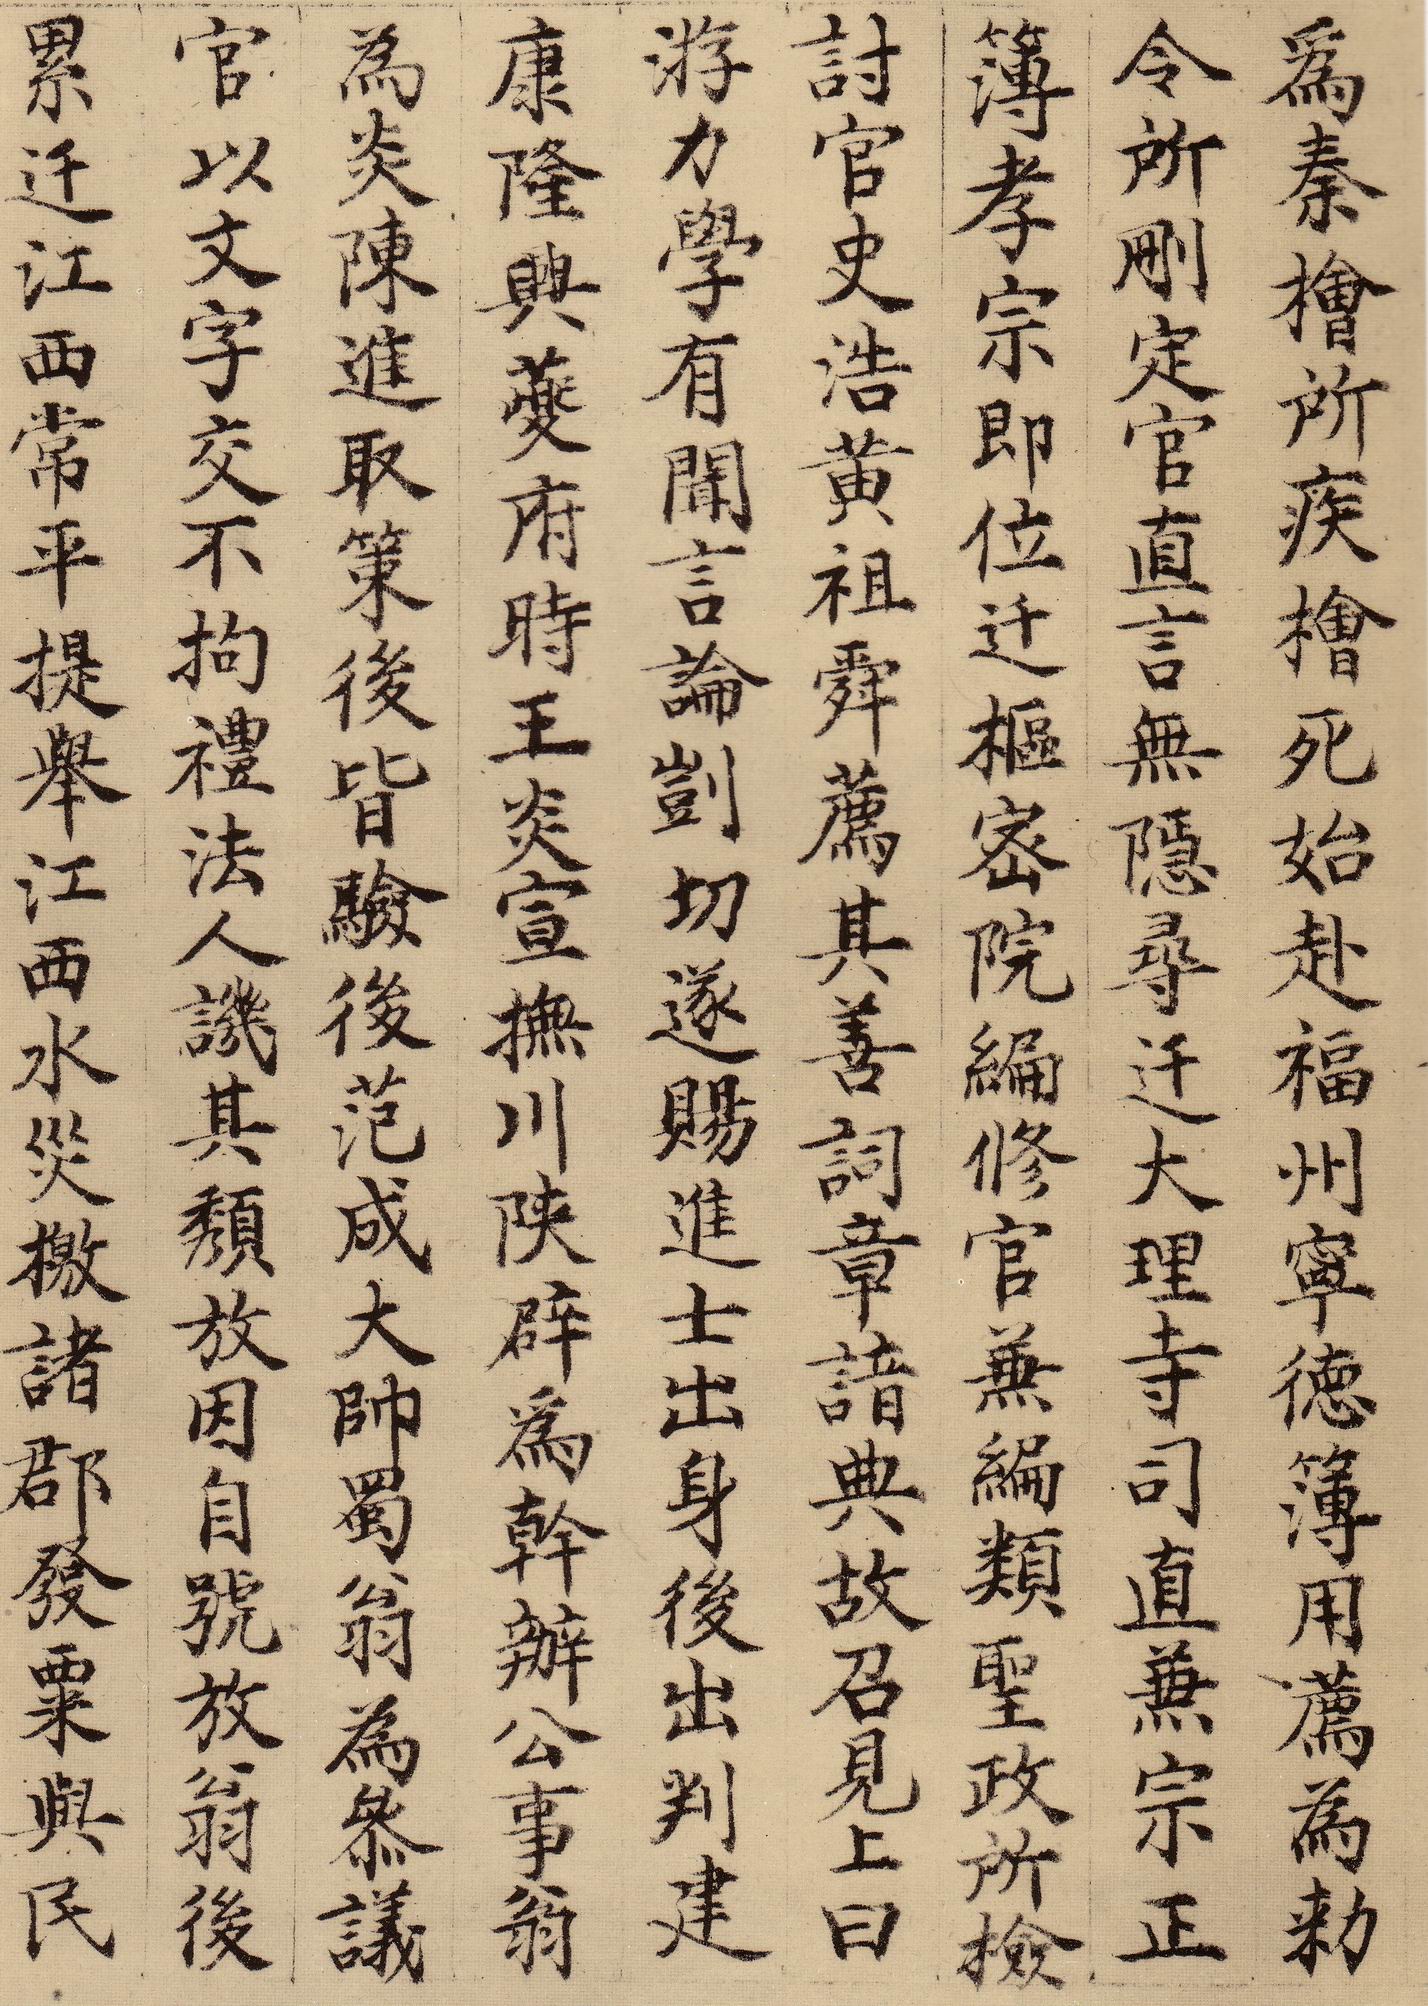 爲秦檜所疾檜死始赴福州寧徳簿用薦為勅
令所刪定官直言無隱尋迁大理寺司直兼宗正
簿孝宗即位迁樞密院編修官兼編類聖政所檢
討官史浩黄祖舜薦其善詞章諳典故召見上曰
游力學有聞言論剴切遂賜進士出身後出判建
康隆興夔府時王炎宣撫川陜辟爲幹辦公事翁
為炎陳進取策後皆驗後范成大帥蜀翁為叅議
官以文字交不拘禮法人譏其頽放因自號放翁後
累迁江西常平提舉江西水災檄諸郡發粟與民